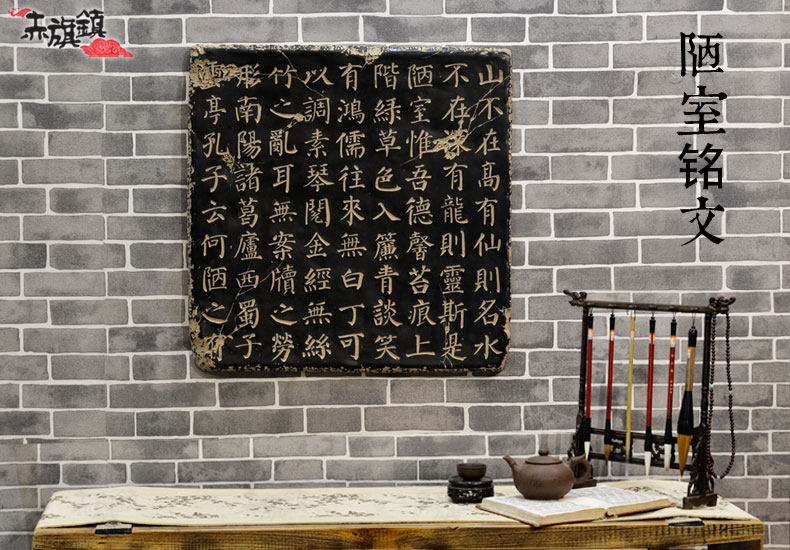 旗鎮
陋室铭文
山不在髙有仙則名水
不在深有龍則靈斯是
陋室惟吾德馨苔痕上
階緑草色入簾青談笑
有鴻儒往來無白丁可
以調素琴閱金經無絲
竹之亂耳無案牘之勞
形南陽諸葛廬西蜀子
雲亭孔子云何陋之有